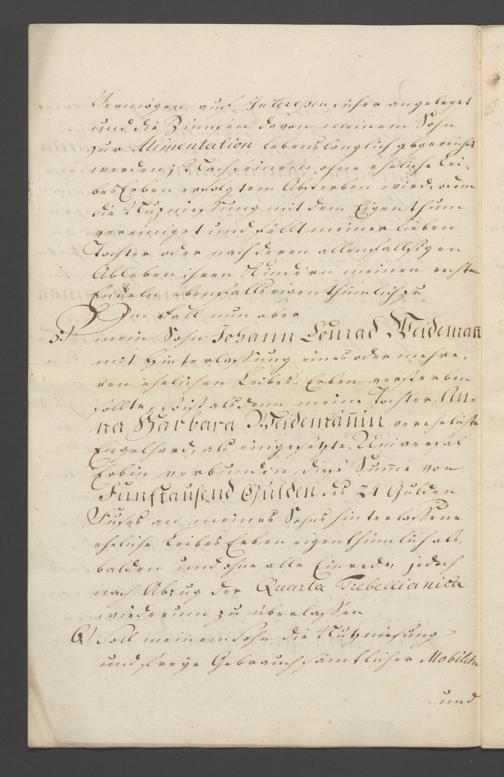 Vermögen auf Interessen sicher angeleget
und die Zinnsen davon meinem Sohn
zur Alimentation lebenslänglich gereichet
werden; Nach seinem ohne eheliche Lei-
bes Erben erfolgtem Absterben wird, dann
die Nutzniessung mit dem Eigenthum
vereiniget und fällt meiner lieben
Tochter oder nach deren allenfallsigen
Ableben ihren Kindern meinen
Enkeln ebenfalls eigenthümlich zu
Im Fall nun aber
5.) mein Sohn Johann Conrad Weidemann
mit Hinterlassung eines oder mehre-
ren ehelichen Leibes Erben versterben
sollte, ist alsdann meine Tochter An-
na Barbara Weidemännin verehelichte
Engelhard, als eingesetzte Universal
Erbin verbunden, diese Summe von
Fünftausend Gulden des 24 Gulden
Fuses an meines Sohns hinterlassene
eheliche Leibes Erben eigenthümlich als-
balden und ohne alle Einrede, jedoch
nach Abzug der Quarta Trebellianica
wiederum zu überlassen
6.) Soll meinem Sohn die Nutzniesung
und freye Gebrauch sämtlicher Mobilien
und